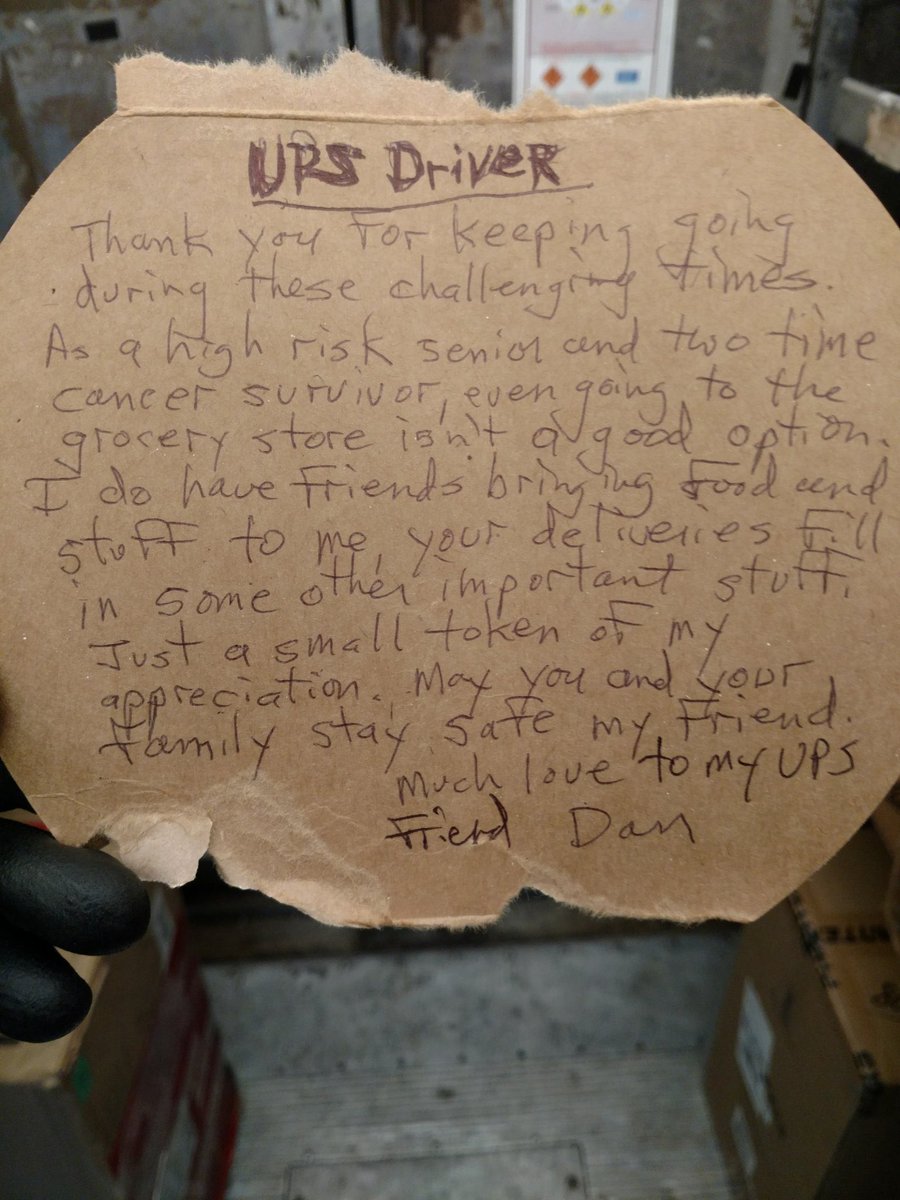 UPS Driver
Thank you for keeping going
during these challenging times.
As a high risk senior and two time
cancer survivor, even going to the
grocery store isn't a good option.
I do have friends bringing food and
stuff to me, your deliveries fill
in some other important stuff.
Just a small token of my
appreciation. May you and your
family stay safe my friend.
Much love to my UPS
Friend Dan